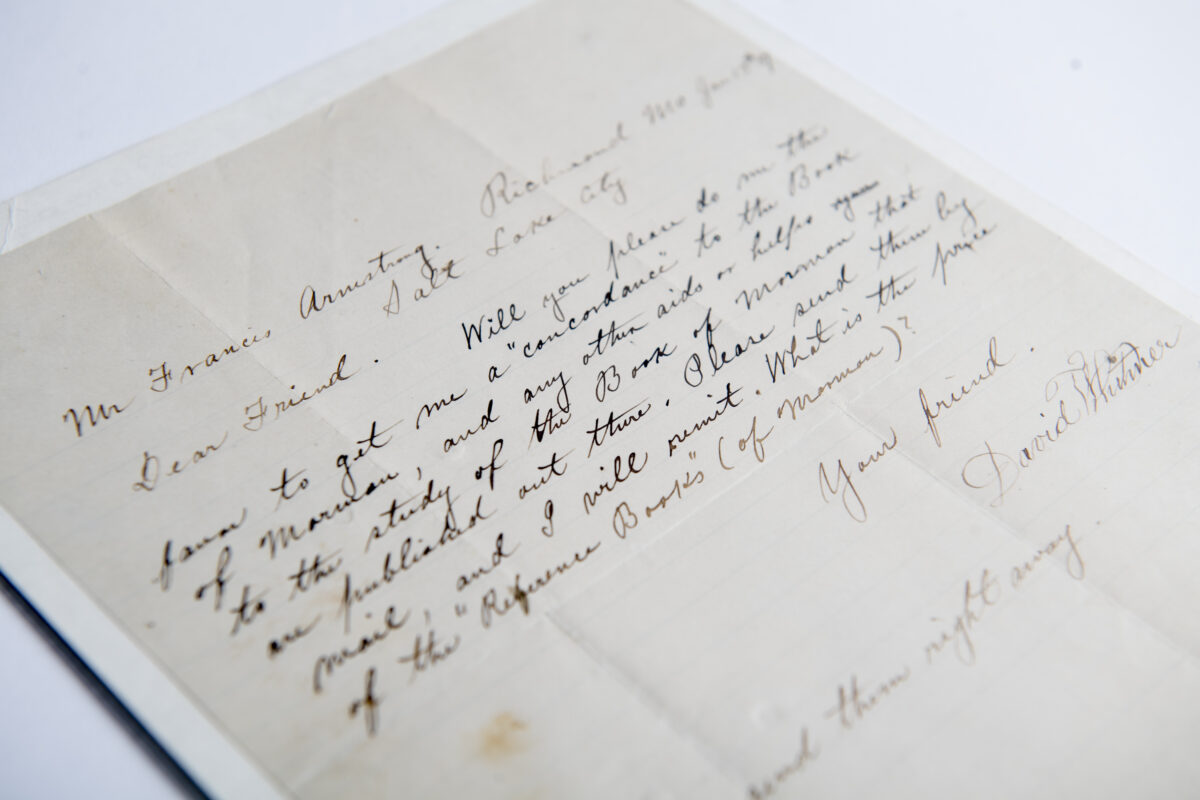 Richmond Mo Jan
Mr Francis Armstrong.
Salt Lake City
Dear Friend. Will you please do me the
favor to get me a "concordance" to the Book
of Mormon, and any other aids or helps
to the study of the Book of Mormon that
are published out there. Please send them by
mail, and I will remit. What is the price
of the "Reference Books" (of Mormon)?
Your friend.
David Whitmer
send them right away.